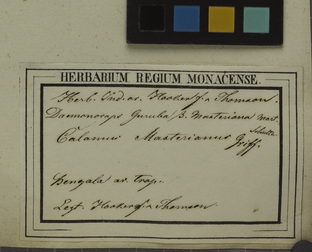 HERBARIUM REGIUM MONACENSE.
Herb. Ind. or. Hooker f. & Thomson.
Daemonorops Guruba β. Masteriana Mart.
Calamus Masterianus Griff.
Bengala or. trop.
Legt. Hooker f. & Thomson